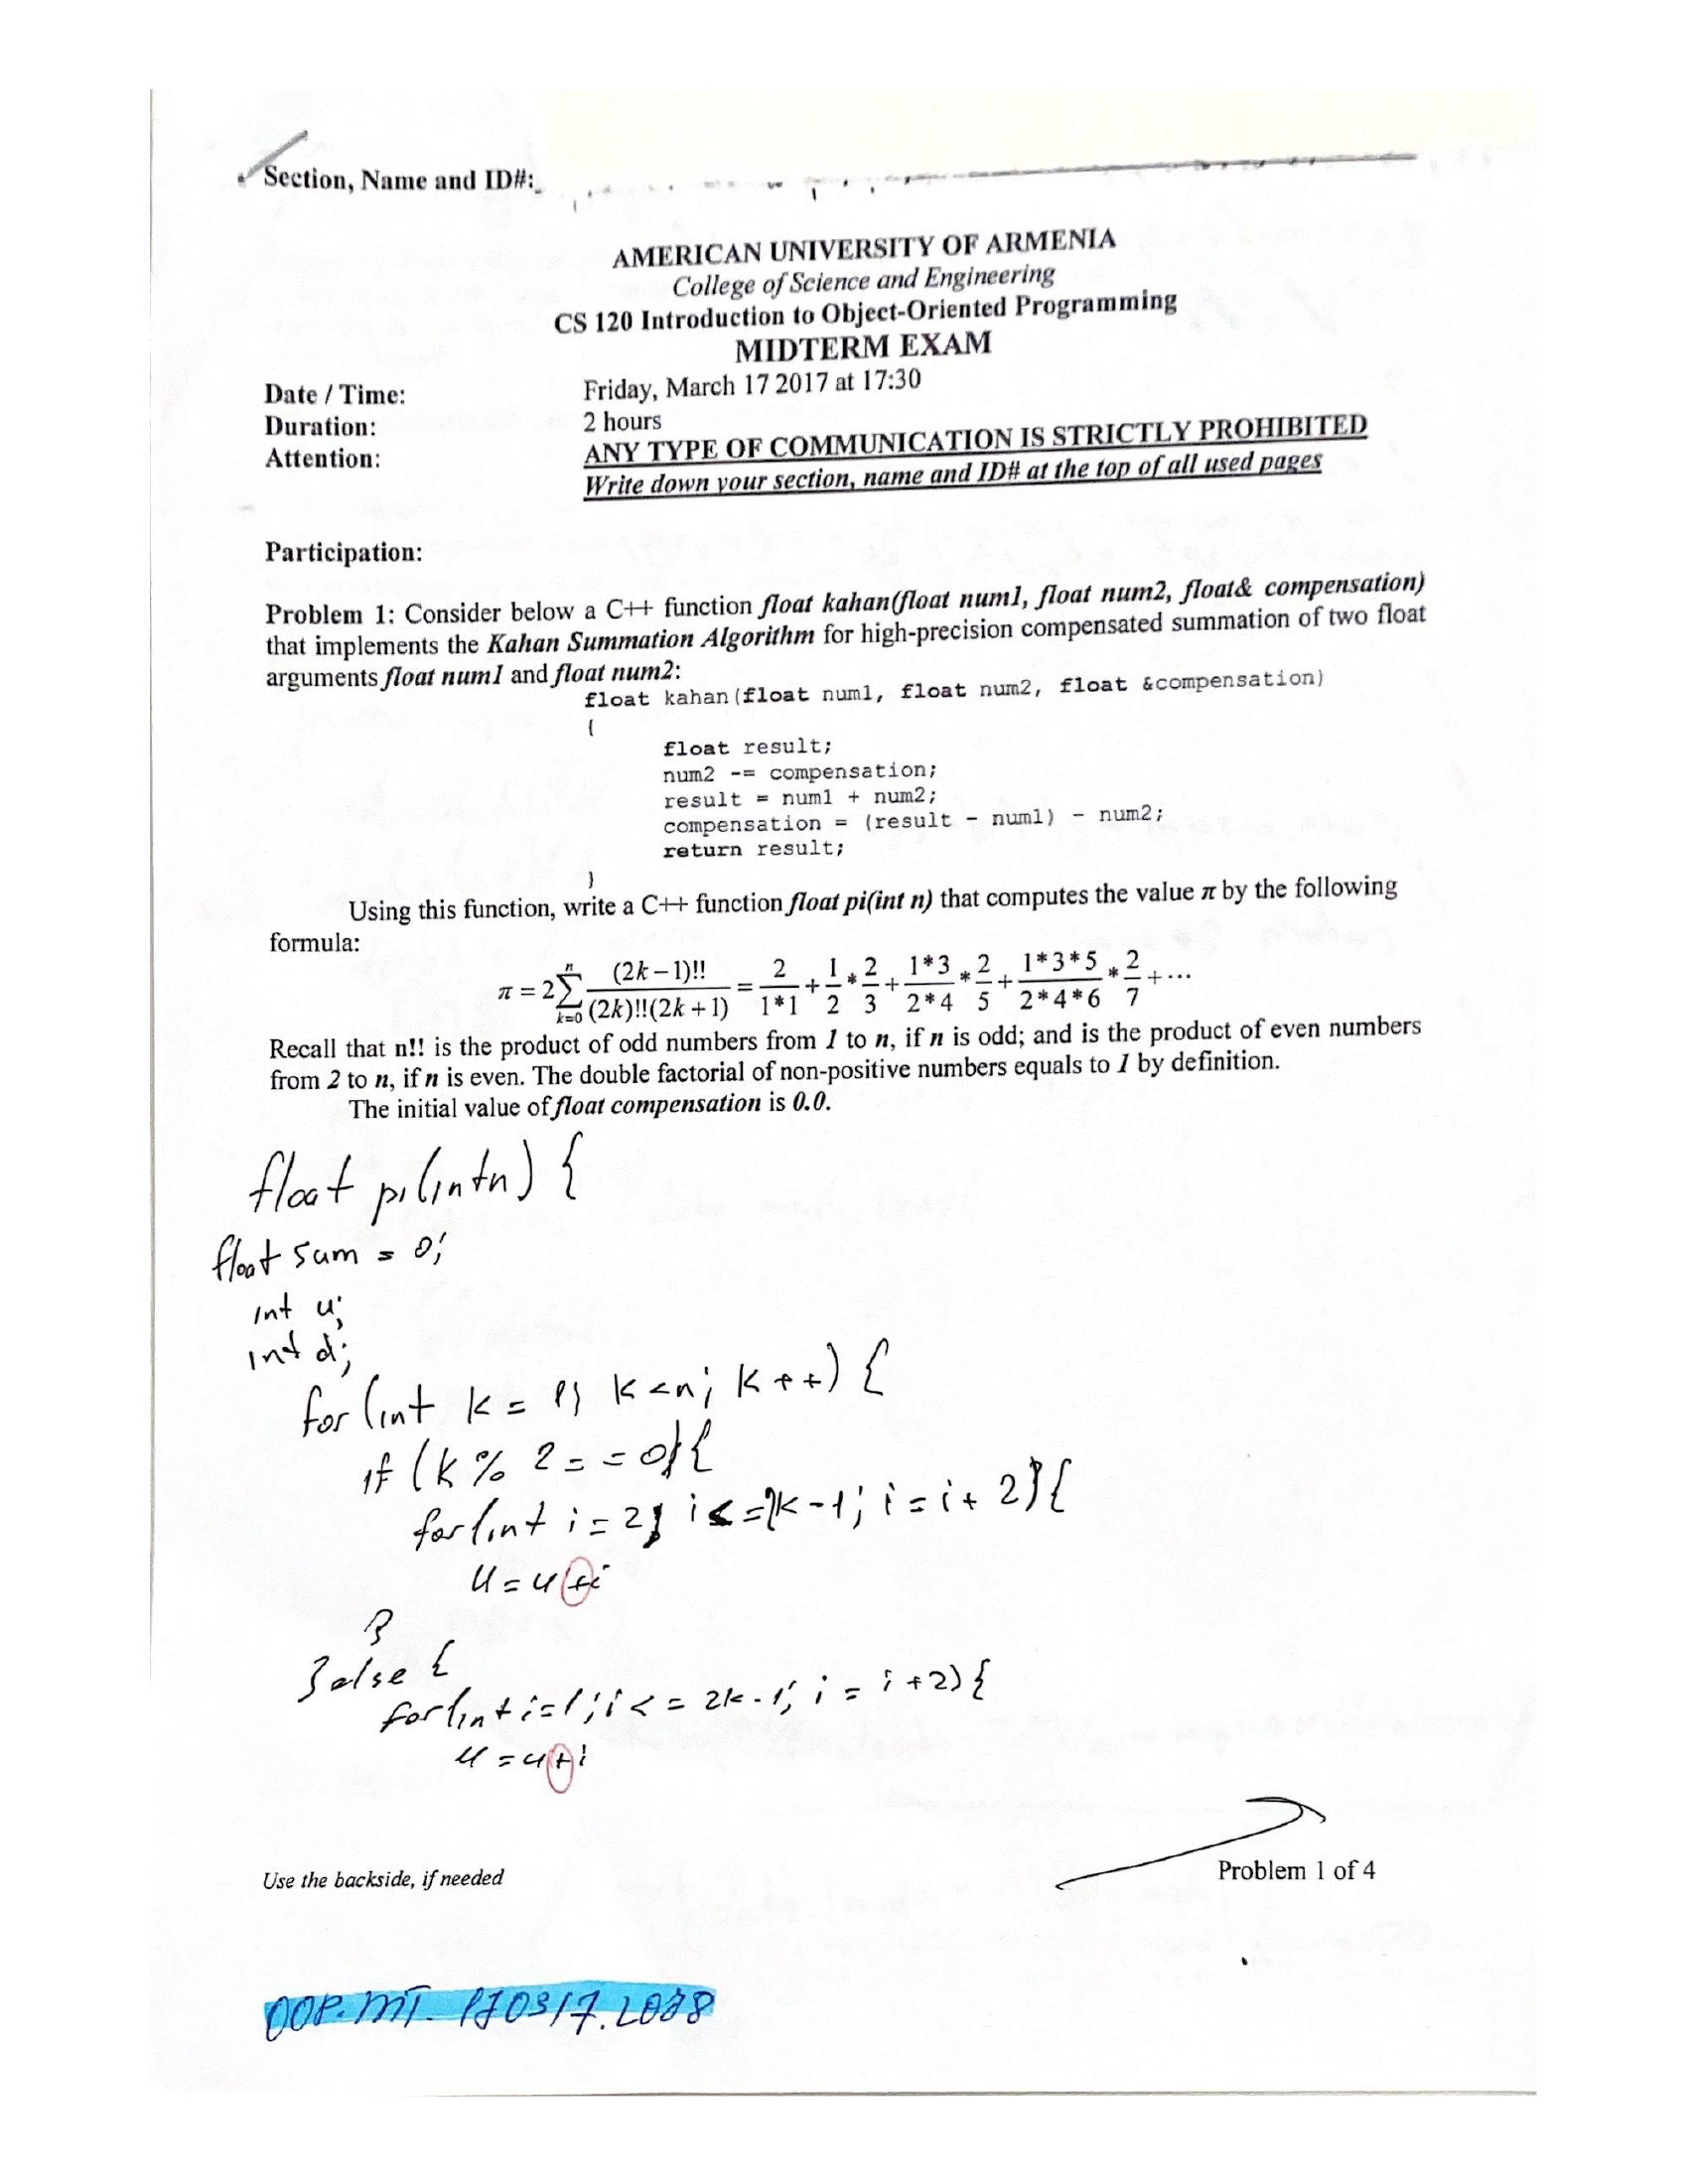 Section, Name and ID#:
AMERICAN UNIVERSITY OF ARMENIA
College of Science and Engineering
CS 120 Introduction to Object-Oriented Programming
MIDTERM EXAM
Date / Time: Friday, March 17 2017 at 17:30
Duration: 2 hours
Attention: ANY TYPE OF COMMUNICATION IS STRICTLY PROHIBITED
Write down your section, name and ID# at the top of all used pages
Participation:
Problem 1: Consider below a C++ function float kahan(float num1, float num2, float& compensation)
that implements the Kahan Summation Algorithm for high-precision compensated summation of two float
arguments float num1 and float num2:
float kahan(float num1, float num2, float &compensation)
{
float result;
num2 -= compensation;
result = num1 + num2;
compensation = (result - num1) - num2;
return result;
}
Using this function, write a C++ function float pi(int n) that computes the value π by the following
formula:
π = 2 ∑_{k=0}^{n} (2k-1)!! / ((2k)!!(2k+1)) = 2/(1*1) + 1/2 * 2/3 + (1*3)/(2*4) * 2/5 + (1*3*5)/(2*4*6) * 2/7 + ...
Recall that n!! is the product of odd numbers from 1 to n, if n is odd; and is the product of even numbers
from 2 to n, if n is even. The double factorial of non-positive numbers equals to 1 by definition.
The initial value of float compensation is 0.0.
float pi(int n) {
float sum = 0;
int u;
int d;
for (int k = 1; k <n; k++) {
if (k % 2 == 0) {
for (int i = 2; i <= 2k-1; i = i+2) {
u = u+i
}
} else {
for (int i=1; i <= 2k-1; i = i+2) {
u = u+i
Use the backside, if needed
Problem 1 of 4
OOP.MT.170317.L088